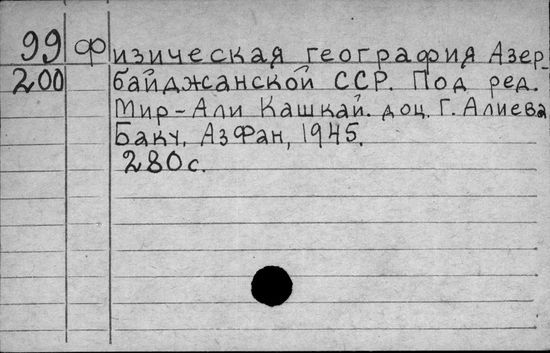 99 Физическая география Азер-
200 байджанской ССР. Под ред.
Мир-Али Кашкай. доц. Г. Алиева
Баку, АзФан, 1945.
280с.